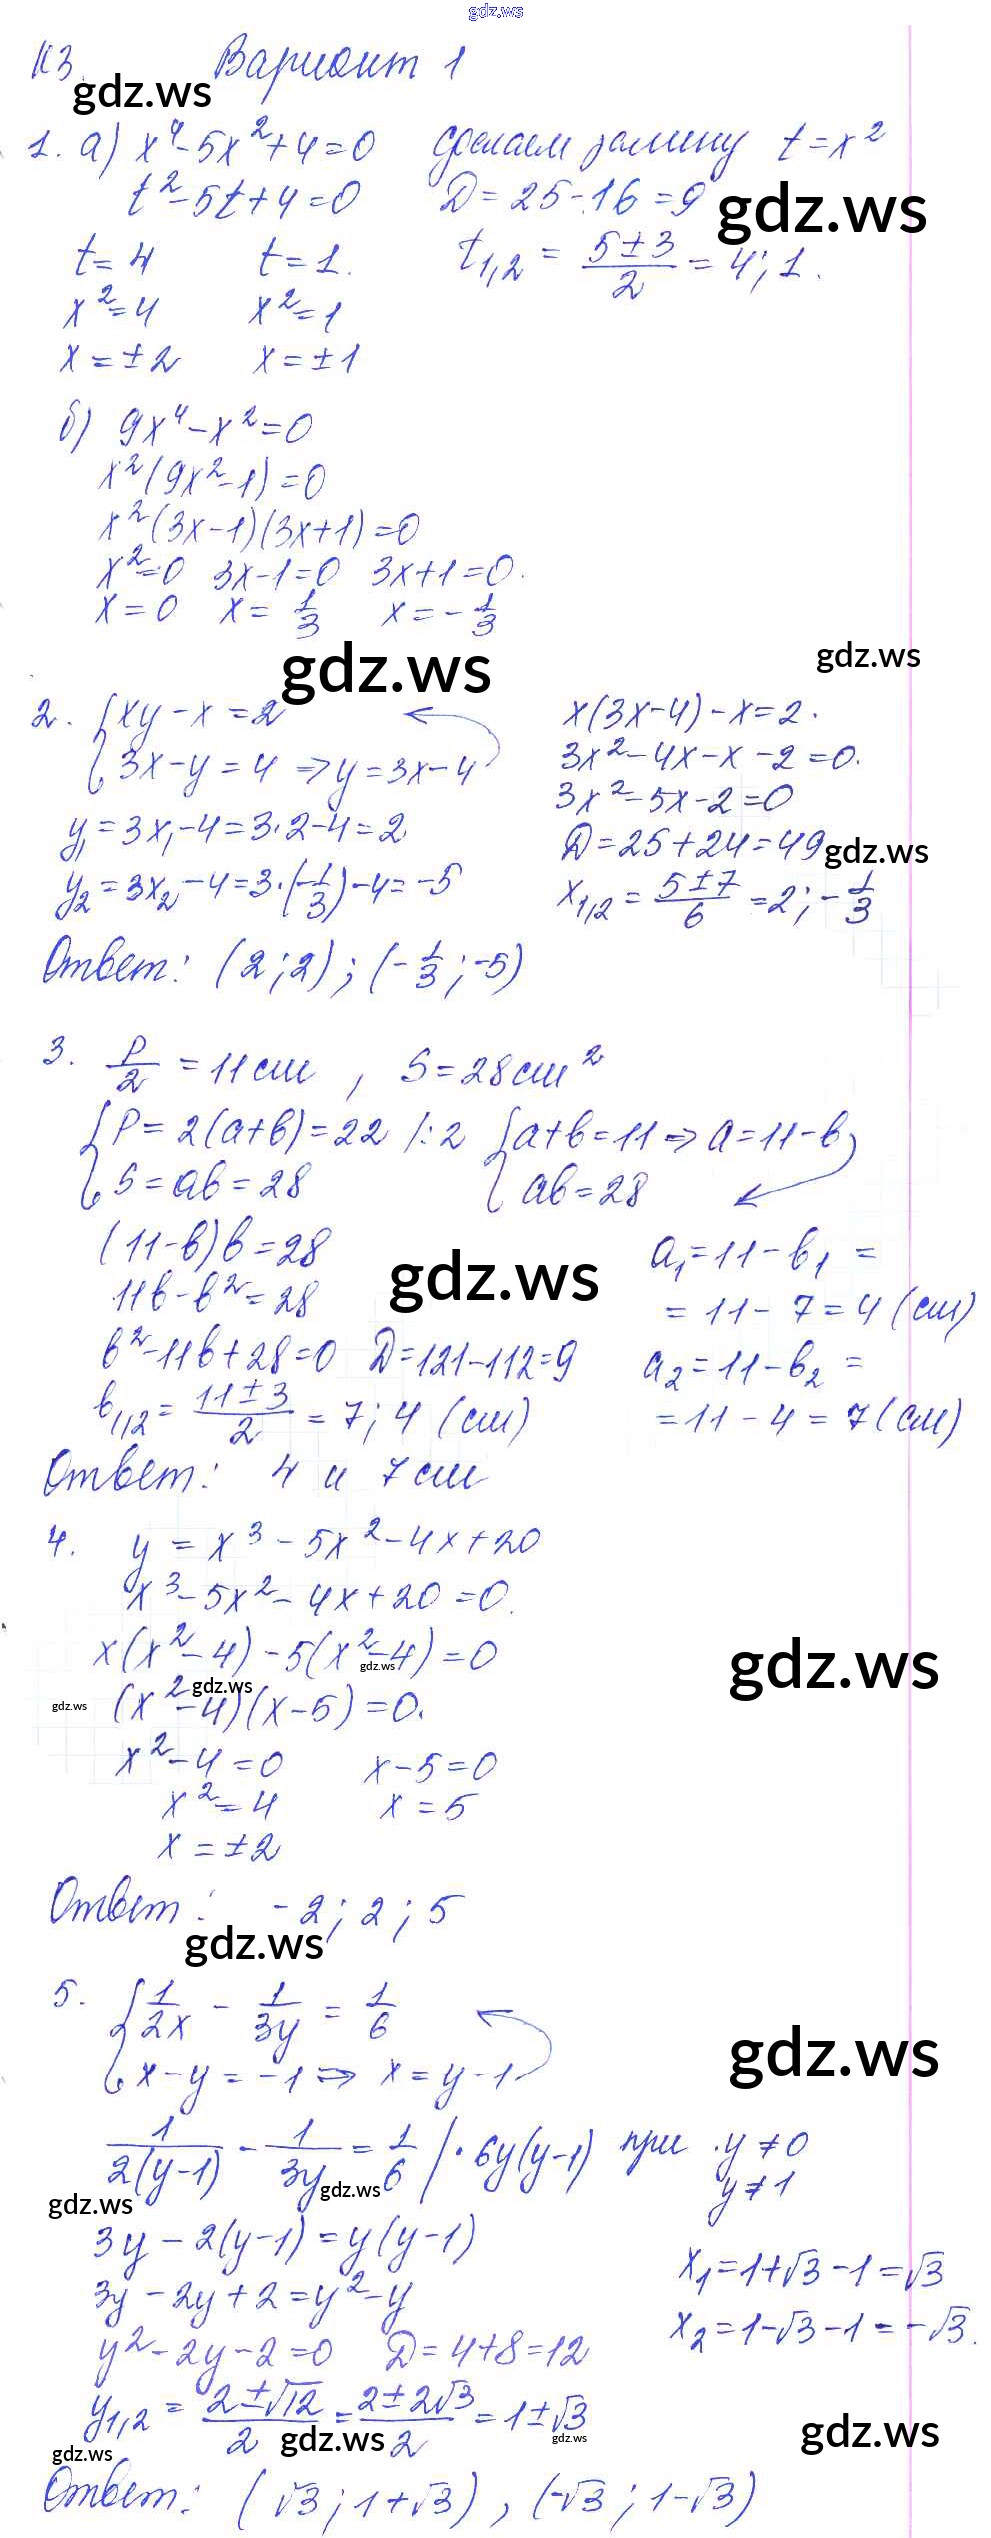 gdz.ws
К3 Вариант 1
gdz.ws
1. а) x⁴-5x²+4=0 сделаем замену t=x²
t²-5t+4=0 D=25-16=9
gdz.ws
t=4 t=1. t₁,₂ = (5±3)/2 = 4; 1.
x²=4 x²=1
x=±2 x=±1
б) 9x⁴-x²=0
x²(9x²-1)=0
x²(3x-1)(3x+1)=0
x²=0 3x-1=0 3x+1=0.
x=0 x=1/3 x=-1/3
gdz.ws gdz.ws
2. { xy-x=2 x(3x-4)-x=2.
3x-y=4 ⇒ y=3x-4 3x²-4x-x-2=0.
3x²-5x-2=0
y₁=3x₁-4=3·2-4=2 D=25+24=49
gdz.ws
y₂=3x₂-4=3·(-1/3)-4=-5 x₁,₂=(5±7)/6=2; -1/3
Ответ: (2;2); (-1/3; -5)
3. P/2 = 11 см, S=28 см²
{ P=2(a+b)=22 /:2 { a+b=11 ⇒ a=11-b
S=ab=28 ab=28
(11-b)b=28 a₁=11-b₁ =
gdz.ws
11b-b²=28 =11-7=4 (см)
b²-11b+28=0 D=121-112=9 a₂=11-b₂=
b₁,₂=(11±3)/2=7; 4 (см) =11-4=7 (см)
Ответ: 4 и 7 см
4. y=x³-5x²-4x+20
x³-5x²-4x+20=0.
x(x²-4)-5(x²-4)=0
gdz.ws
gdz.ws
gdz.ws
gdz.ws
(x²-4)(x-5)=0.
x²-4=0 x-5=0
x²=4 x=5
x=±2
Ответ: -2; 2; 5
gdz.ws
5. { 1/2x - 1/3y = 1/6
x-y=-1 ⇒ x=y-1
gdz.ws
1/2(y-1) - 1/3y = 1/6 /·6y(y-1) при y≠0
y≠1
gdz.ws
gdz.ws
3y-2(y-1)=y(y-1)
3y-2y+2=y²-y x₁=1+√3-1=√3
y²-2y-2=0 D=4+8=12 x₂=1-√3-1=-√3.
y₁,₂=(2±√12)/2=(2±2√3)/2=1±√3
gdz.ws
gdz.ws
gdz.ws
gdz.ws
Ответ: (√3; 1+√3), (-√3; 1-√3)